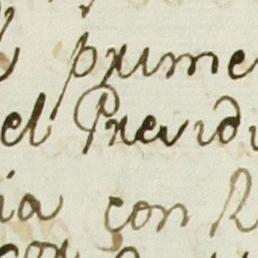 prime
el Previdi
ia con R